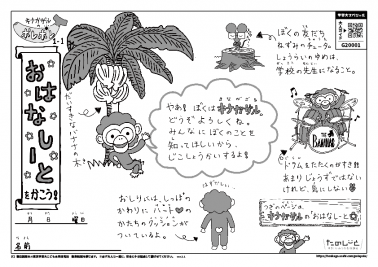 キナガザル
の
ボレボレ
1-1
おはなしーと
をかこう!
月 日 曜日
名前
だいすきなバナナの木
ぼくの友だち
ねずみのチュータ
しょうらいのゆめは、
学校の先生になること。
やあ! ぼくはキナガザル。
どうぞよろしくね。
みんなにぼくのことを
知ってほしいから、
じこしょうかいするよ!
G20001
THE BANANAS
ドラムをたたくのがすき!!
あまりじょうずではない
けれど、気にしない
おしりには、しっぽの
かわりにハート♥の
かたちのクッションが
ついているよ。
はずかしい…
つぎのページは、
キナガザルの「おはなしーと」